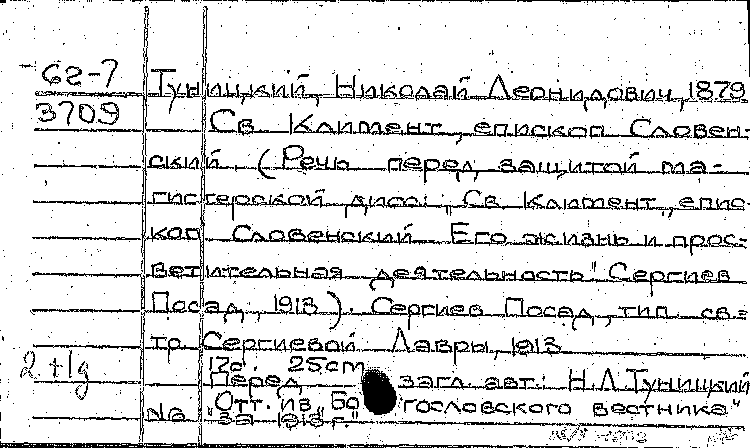 62-7
3709
Туницкий, Николай Леонидович, 1879
Св. Климент, епископ Словен-
ский. (Речь перед защитой ма-
гистерской дисс.: „Св. Климент, епис-
коп Словенский. Его жизнь и прос-
ветительная деятельность". Сергиев
Посад, 1913). Сергиев Посад, тип. св.-
тр. Сергиевой Лавры, 1913
12с. 25cm
Перед загл. авт.: Н.Л. Туницкий
"Отт. из „Богословского вестника"
за 1913 г."
Na
2 + 1g